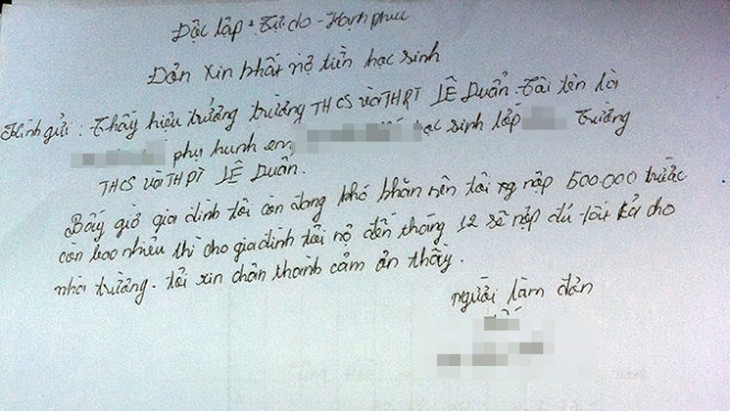 Độc lập - Tự do - Hạnh phúc
Đản xin khất nợ tiền học sinh
Kính gửi: Thầy hiệu trưởng trường THCS và THPT LÊ Duẩn. Tôi tên là
phụ huynh em, học sinh lớp Trường
THCS và THPT LÊ Duẩn.
Bây giờ gia đình tôi còn đang khó khăn nên tôi nộp 500.000 trước
còn bao nhiêu thì cho gia đình tôi nợ đến tháng 12 sẽ nộp đủ tất cả cho
nhà trường. Tôi xin chân thành cảm ơn thầy.
người làm đơn